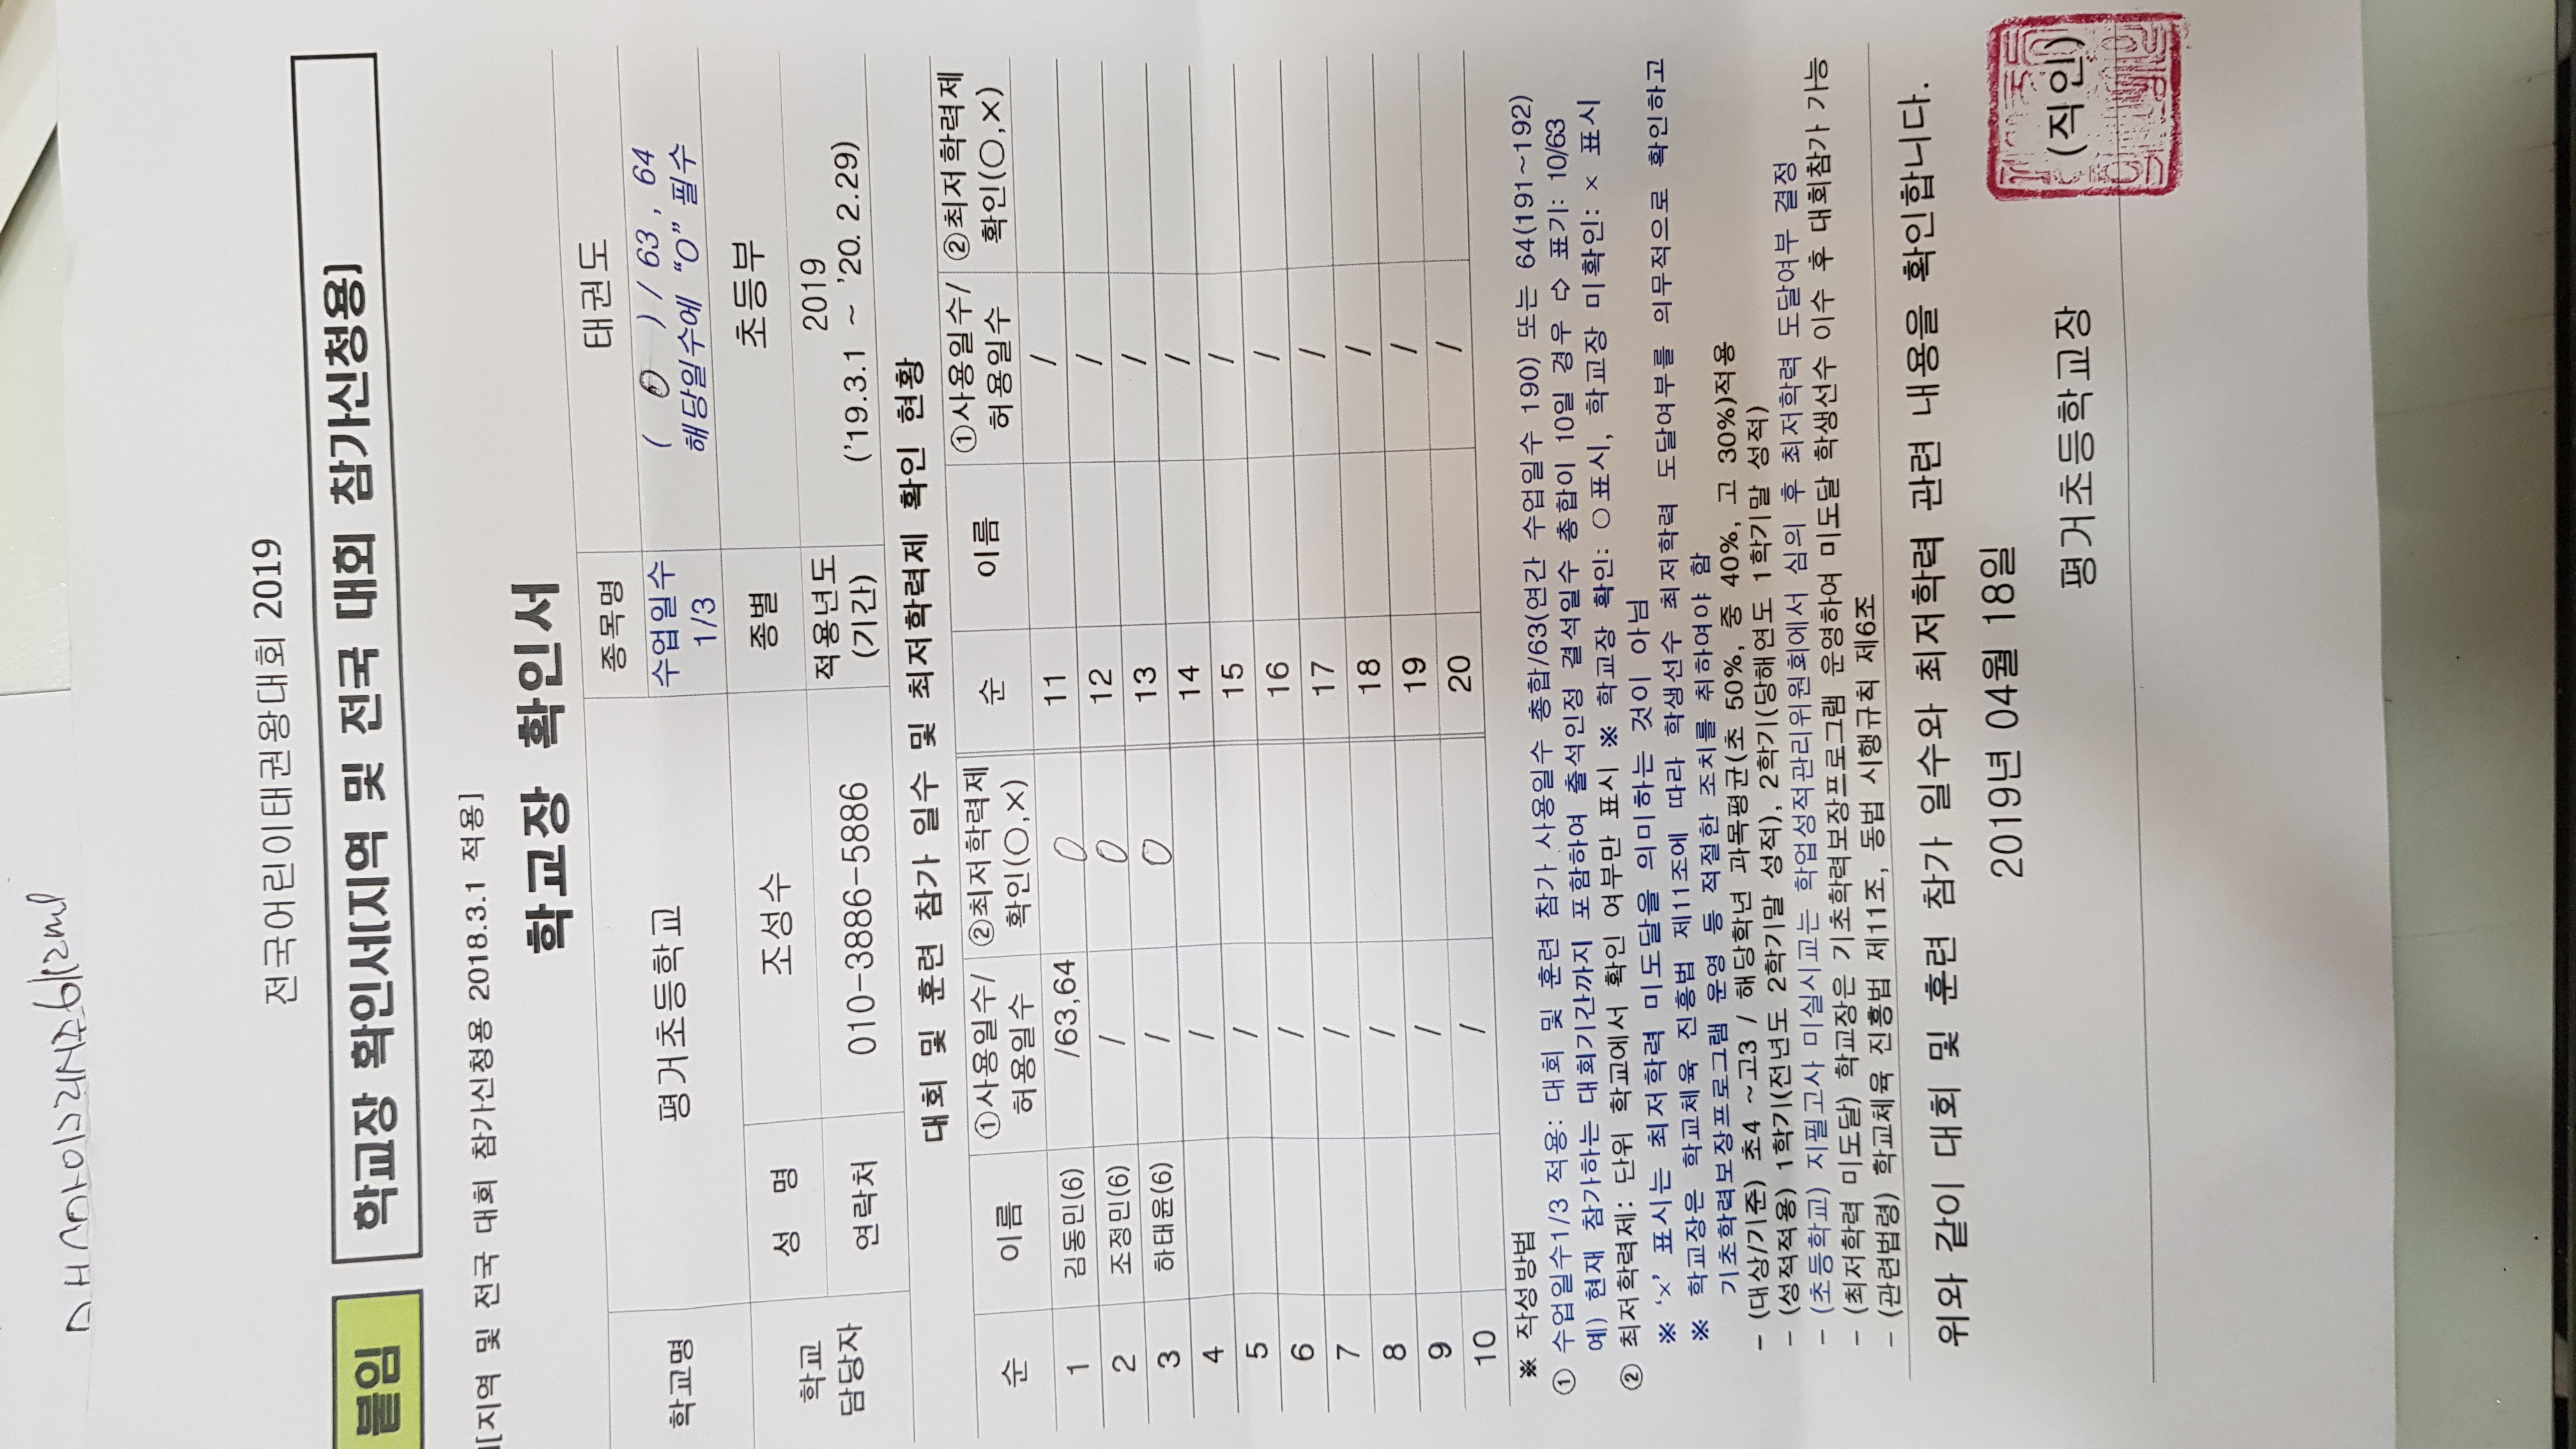 전국어린이태권왕대회 2019
붙임
학교장 확인서[지역 및 전국 대회 참가신청용]
[지역 및 전국 대회 참가신청용 2018.3.1 적용]
학교장 확인서
학교명 평거초등학교 종목명 태권도
수업일수 1/3 ( 0 ) / 63 , 64
해당일수에 “O” 필수
학교 담당자 성 명 조성수 종별 초등부
연락처 010-3886-5886 적용년도 (기간) 2019
('19.3.1 ~ '20. 2.29)
대회 및 훈련 참가 일수 및 최저학력제 확인 현황
순 이름 ①사용일수/ 허용일수 ②최저학력제 확인(○,×) 순 이름 ①사용일수/ 허용일수 ②최저학력제 확인(○,×)
1 김동민(6) /63,64 0 11 /
2 조정민(6) / 0 12 /
3 하태윤(6) / 0 13 /
4 / 14 /
5 / 15 /
6 / 16 /
7 / 17 /
8 / 18 /
9 / 19 /
10 / 20 /
※ 작성방법
① 수업일수1/3 적용: 대회 및 훈련 참가 사용일수 총합/63(연간 수업일수 190) 또는 64(191~192)
예) 현재 참가하는 대회기간까지 포함하여 출석인정 결석일수 총합이 10일 경우 ⇨ 표기: 10/63
② 최저학력제: 단위 학교에서 확인 여부만 표시 ※ 학교장 확인: ○표시, 학교장 미확인: × 표시
※ ‘×’ 표시는 최저학력 미도달을 의미하는 것이 아님
※ 학교장은 학교체육 진흥법 제11조에 따라 학생선수 최저학력 도달여부를 의무적으로 확인하고
기초학력보장프로그램 운영 등 적절한 조치를 취하여야 함
- (대상/기준) 초4 ~고3 / 해당학년 과목평균(초 50%, 중 40%, 고 30%)적용
- (성적적용) 1학기(전년도 2학기말 성적), 2학기(당해연도 1학기말 성적)
- (초등학교) 지필고사 미실시교는 학업성적관리위원회에서 심의 후 최저학력 도달여부 결정
- (최저학력 미도달) 학교장은 기초학력보장프로그램 운영하여 미도달 학생선수 이수 후 대회참가 가능
- (관련법령) 학교체육 진흥법 제11조, 동법 시행규칙 제6조
위와 같이 대회 및 훈련 참가 일수와 최저학력 관련 내용을 확인합니다.
2019년 04월 18일
평거초등학교장 (직인)